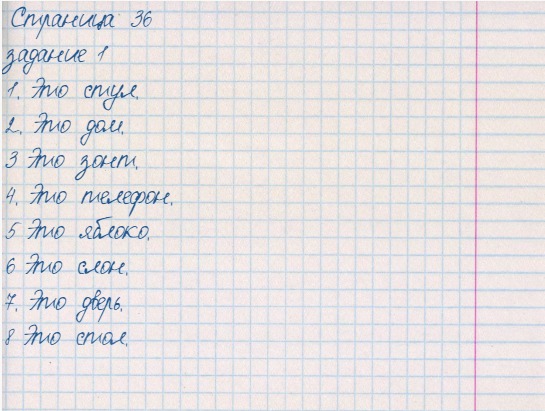 Страница 36
задание 1
1. Это стул.
2. Это дом.
3 Это зонт.
4. Это телефон.
5 Это яблоко.
6 Это слон.
7. Это дверь.
8 Это стол.